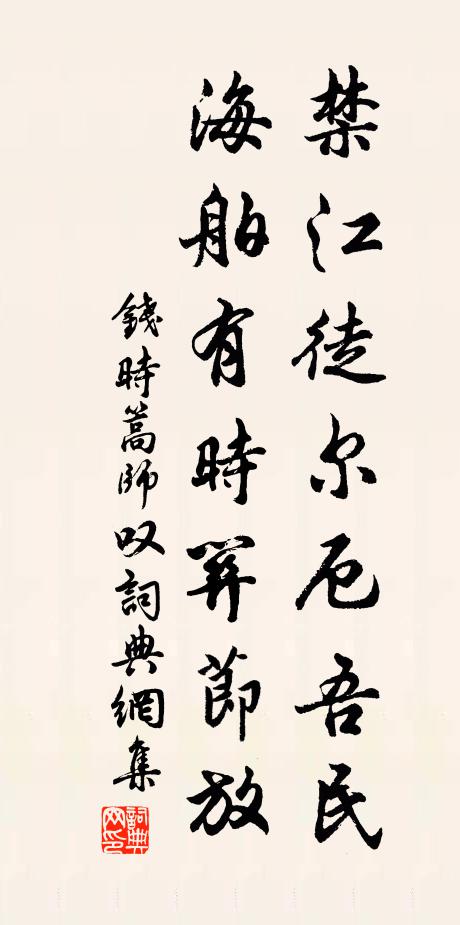 禁江徒尔厄吾民
海舶有時関節放
錢時篙師叹詞典網集
詞典網印